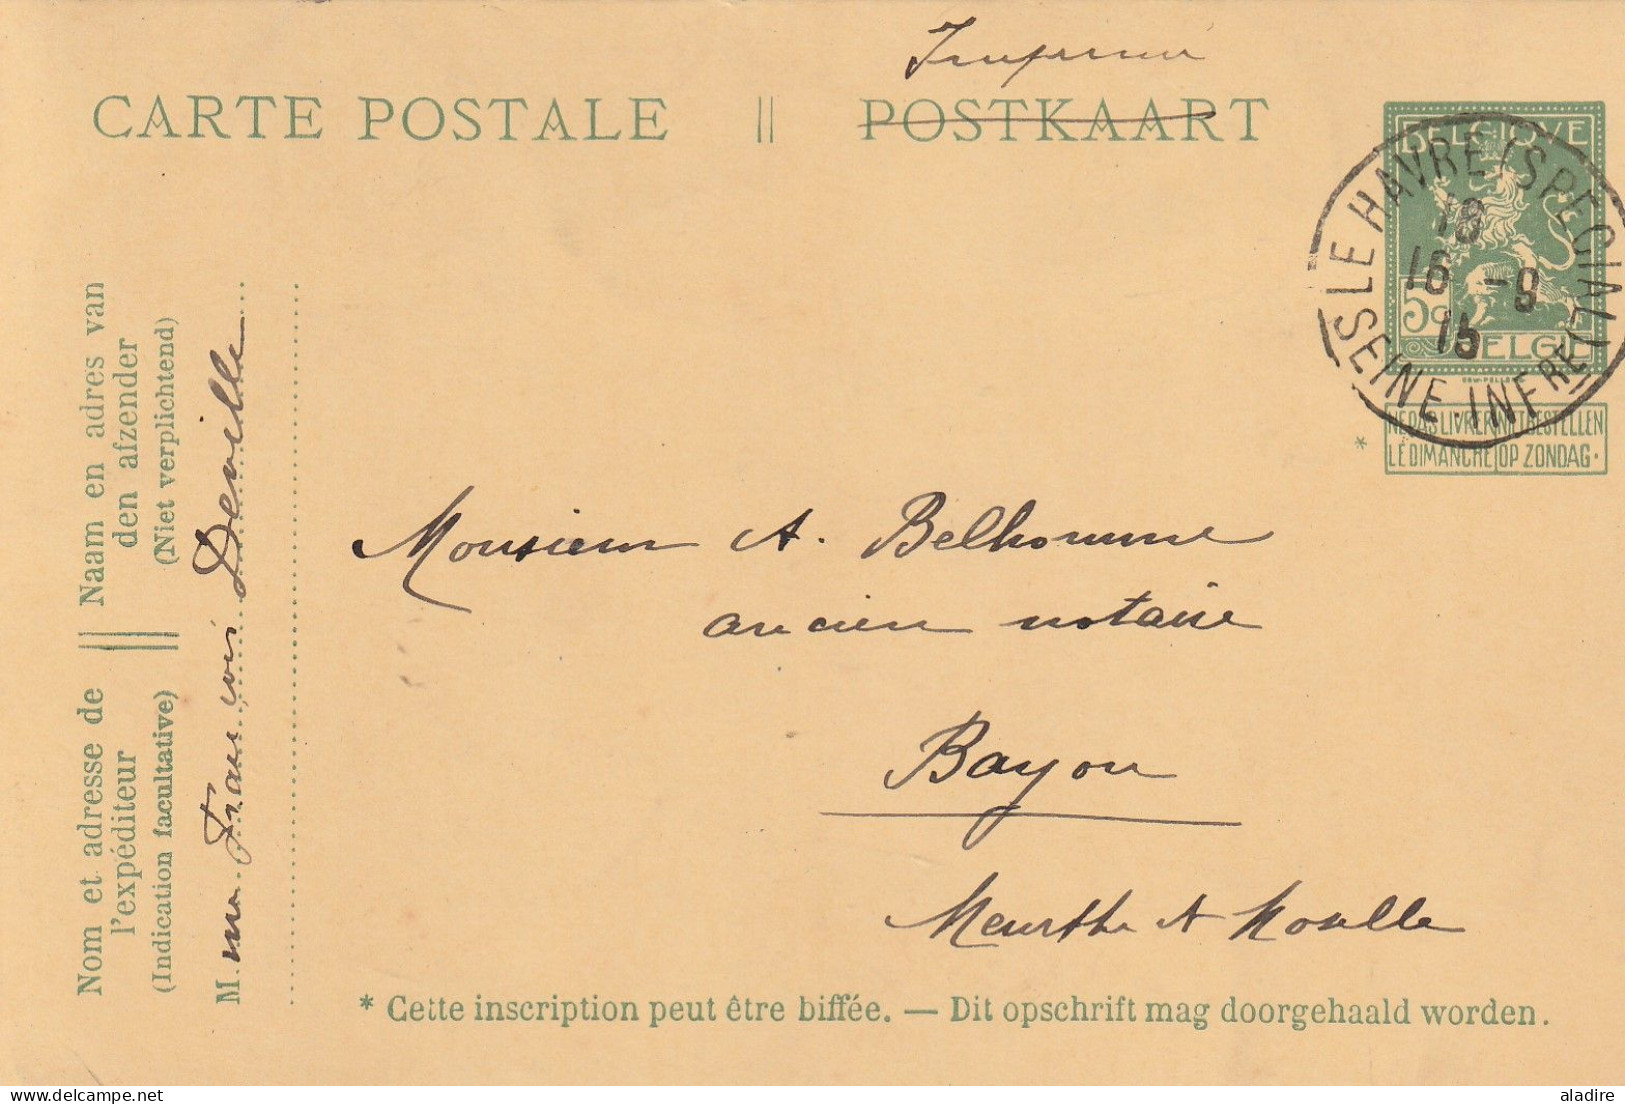 Imprimé
CARTE POSTALE || POSTKAART
BELGIQUE
5c
BELGIE
LE HAVRE (SPECIAL)
18
16 - 9
15
SEINE-INFRE
NE PAS LIVRER NIET BESTELLEN
* LE DIMANCHE OP ZONDAG.
Naam en adres van
den afzender
(Niet verplichtend)
Nom et adresse de
l'expéditeur
(Indication facultative)
Mme François Deville
Monsieur A. Belhomme
ancien notaire
Bayon
Meurthe et Moselle
* Cette inscription peut être biffée. — Dit opschrift mag doorgehaald worden.
aladire